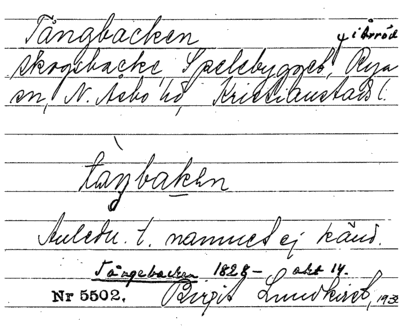 Tångbacken
skogsbacke, Spelebygget, Rya
sn, N. Åsbo hd, Kristianstads l.
tàŋbakən
Anledn. t. namnet ej känd.
Tångebacken 1828– akt 14.
Nr 5502. Birgit Lundkvist, 193